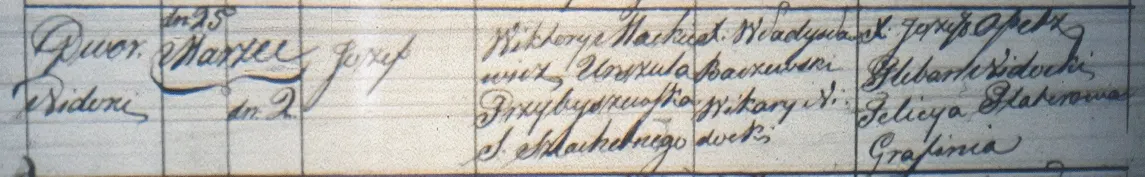 Dwor. Widoki
dn. 25 Marzec dn. 2.
Jozef
Wiktorye Mackie
wicz Urszula
Przybyszewska
S. Szlachetnego
X. Władysła
Baczewski
Wikary Wi-
docki
X. Jozef Opetz
Pleban Widocki
Felicya Platerowa
Grafinia